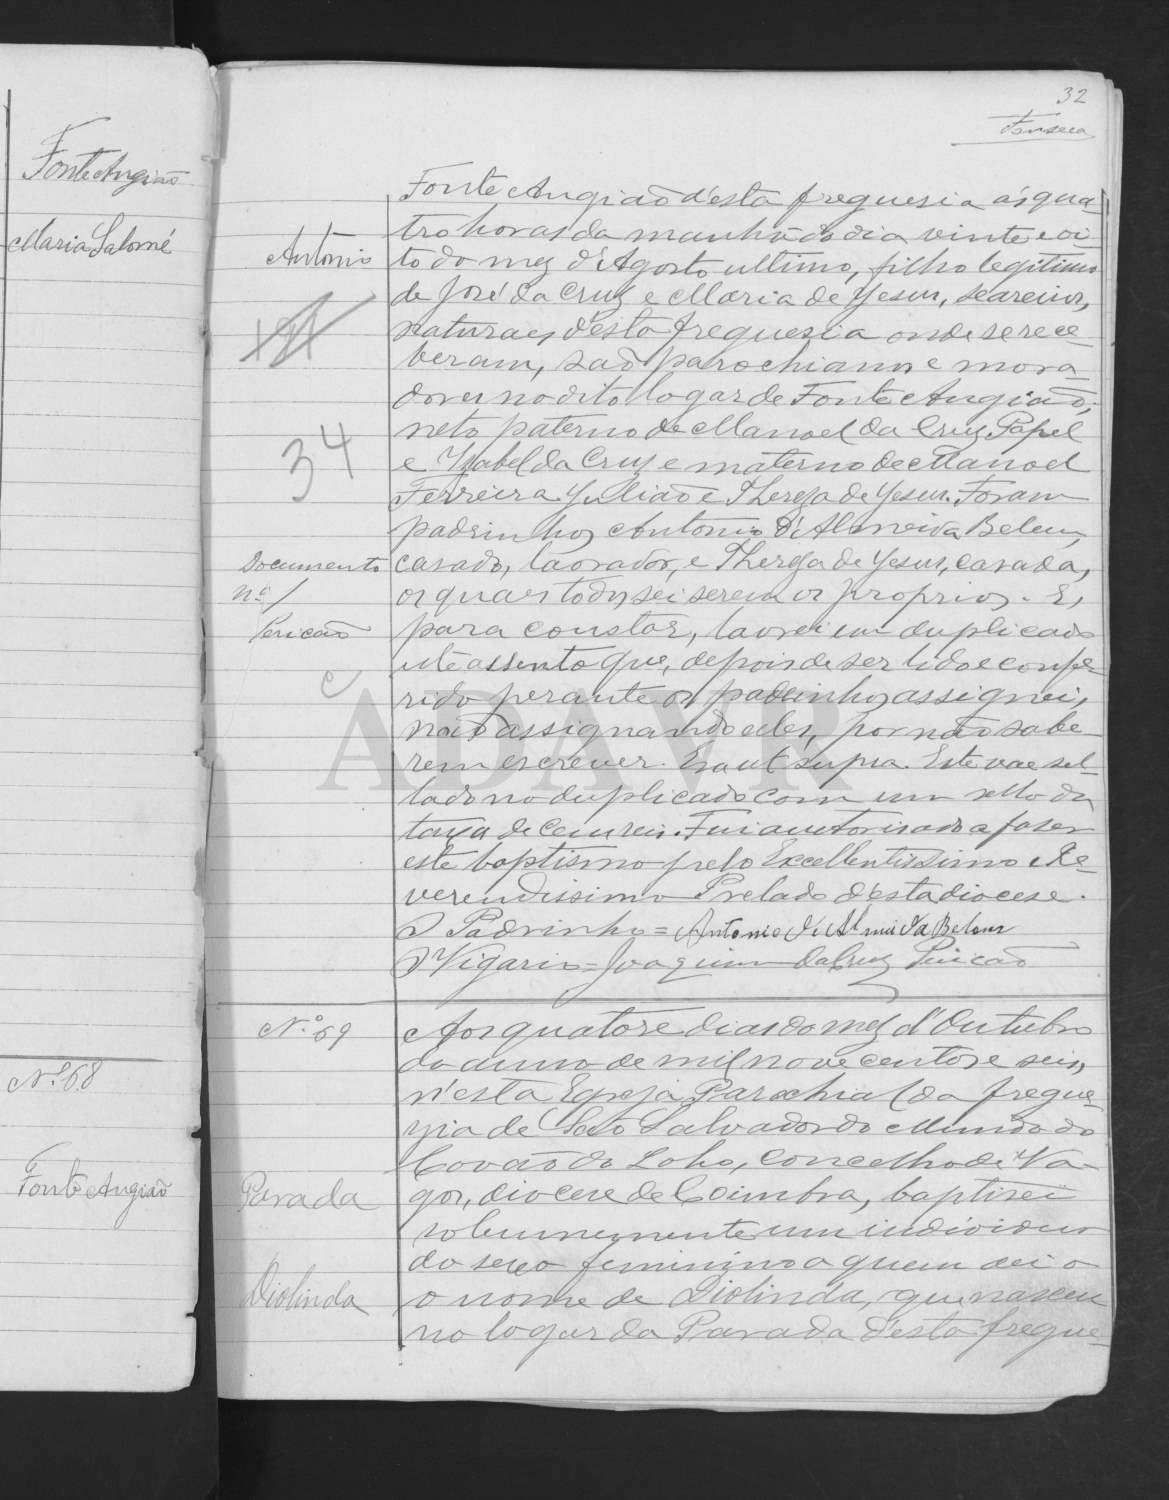 Fonte Angião
Maria Salomé
Nº 68
Fonte Angião
32
Fonseca
Antonio
34
Documento
nº 1
Pericão
Fonte Angião d'esta freguesia ás qua-
tro horas da manhã do dia vinte e oi-
to do mez d'Agosto ultimo, filho legitimo
de José da Cruz e Maria de Jesus, seareiros,
naturaes d'esta freguesia onde se rece-
beram, são parochianos e mora-
dores no dito logar de Fonte Angião,
neto paterno de Manoel da Cruz Papel
e Izabel da Cruz e materno de Manoel
Ferreira Julião e Thereza de Jesus. Foram
padrinhos Antonio d'Almeida Belem,
casado, lavrador, e Thereza de Jesus, casada,
os quaes todos sei serem os proprios. E,
para constar, lavrei em duplicado
este assento que, depois de ser lido e confe-
rido perante os padrinhos, assignei,
não assignando elles, por não sabe-
rem escrever. Era ut supra. Este vae sel-
lado no duplicado com um sello da
taxa de cem reis. Fui auctorisado a faser
este baptismo pelo Excellentissimo e Re-
verendissimo Prelado d'esta diocese.
O Padrinho = Antonio d'Almeida Belem
O Vigario = Joaquim da Cruz Pericão
ADAVR
N.º 69
Parada
Diolinda
Aos quatorse dias do mez d'Outubro
do anno de mil nove centos e seis,
n'esta Egreja Parochial da fregue-
zia de São Salvador do Mundo do
Covão do Lobo, concelho de Va-
gos, diocese de Coimbra, baptisei
solemnemente um individuo
do sexo feminino a quem dei o
o nome de Diolinda, que nasceu
no logar da Parada d'esta fregue-